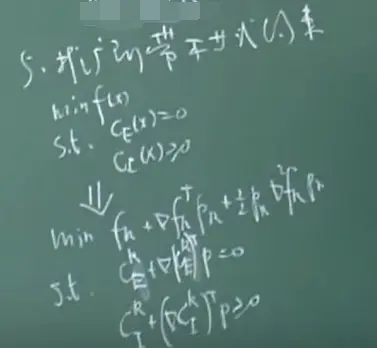 5. 推广到带不等式约束
min f(x)
s.t. C_E(x)=0
C_I(x)≥0
⇓
min f_k+∇f_k^T p_k+½p_k∇²f_k p_k
s.t. C_E^k+∇(C_E^k)^T p=0
C_I^k+(∇C_I^k)^T p≥0